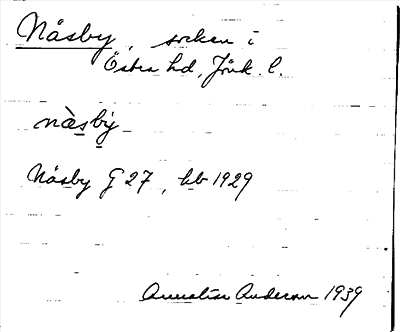 Näsby, socken i
Östra hd, Jönk. l.
näsby
Näsby G 27, hb 1929
Anderson 1939